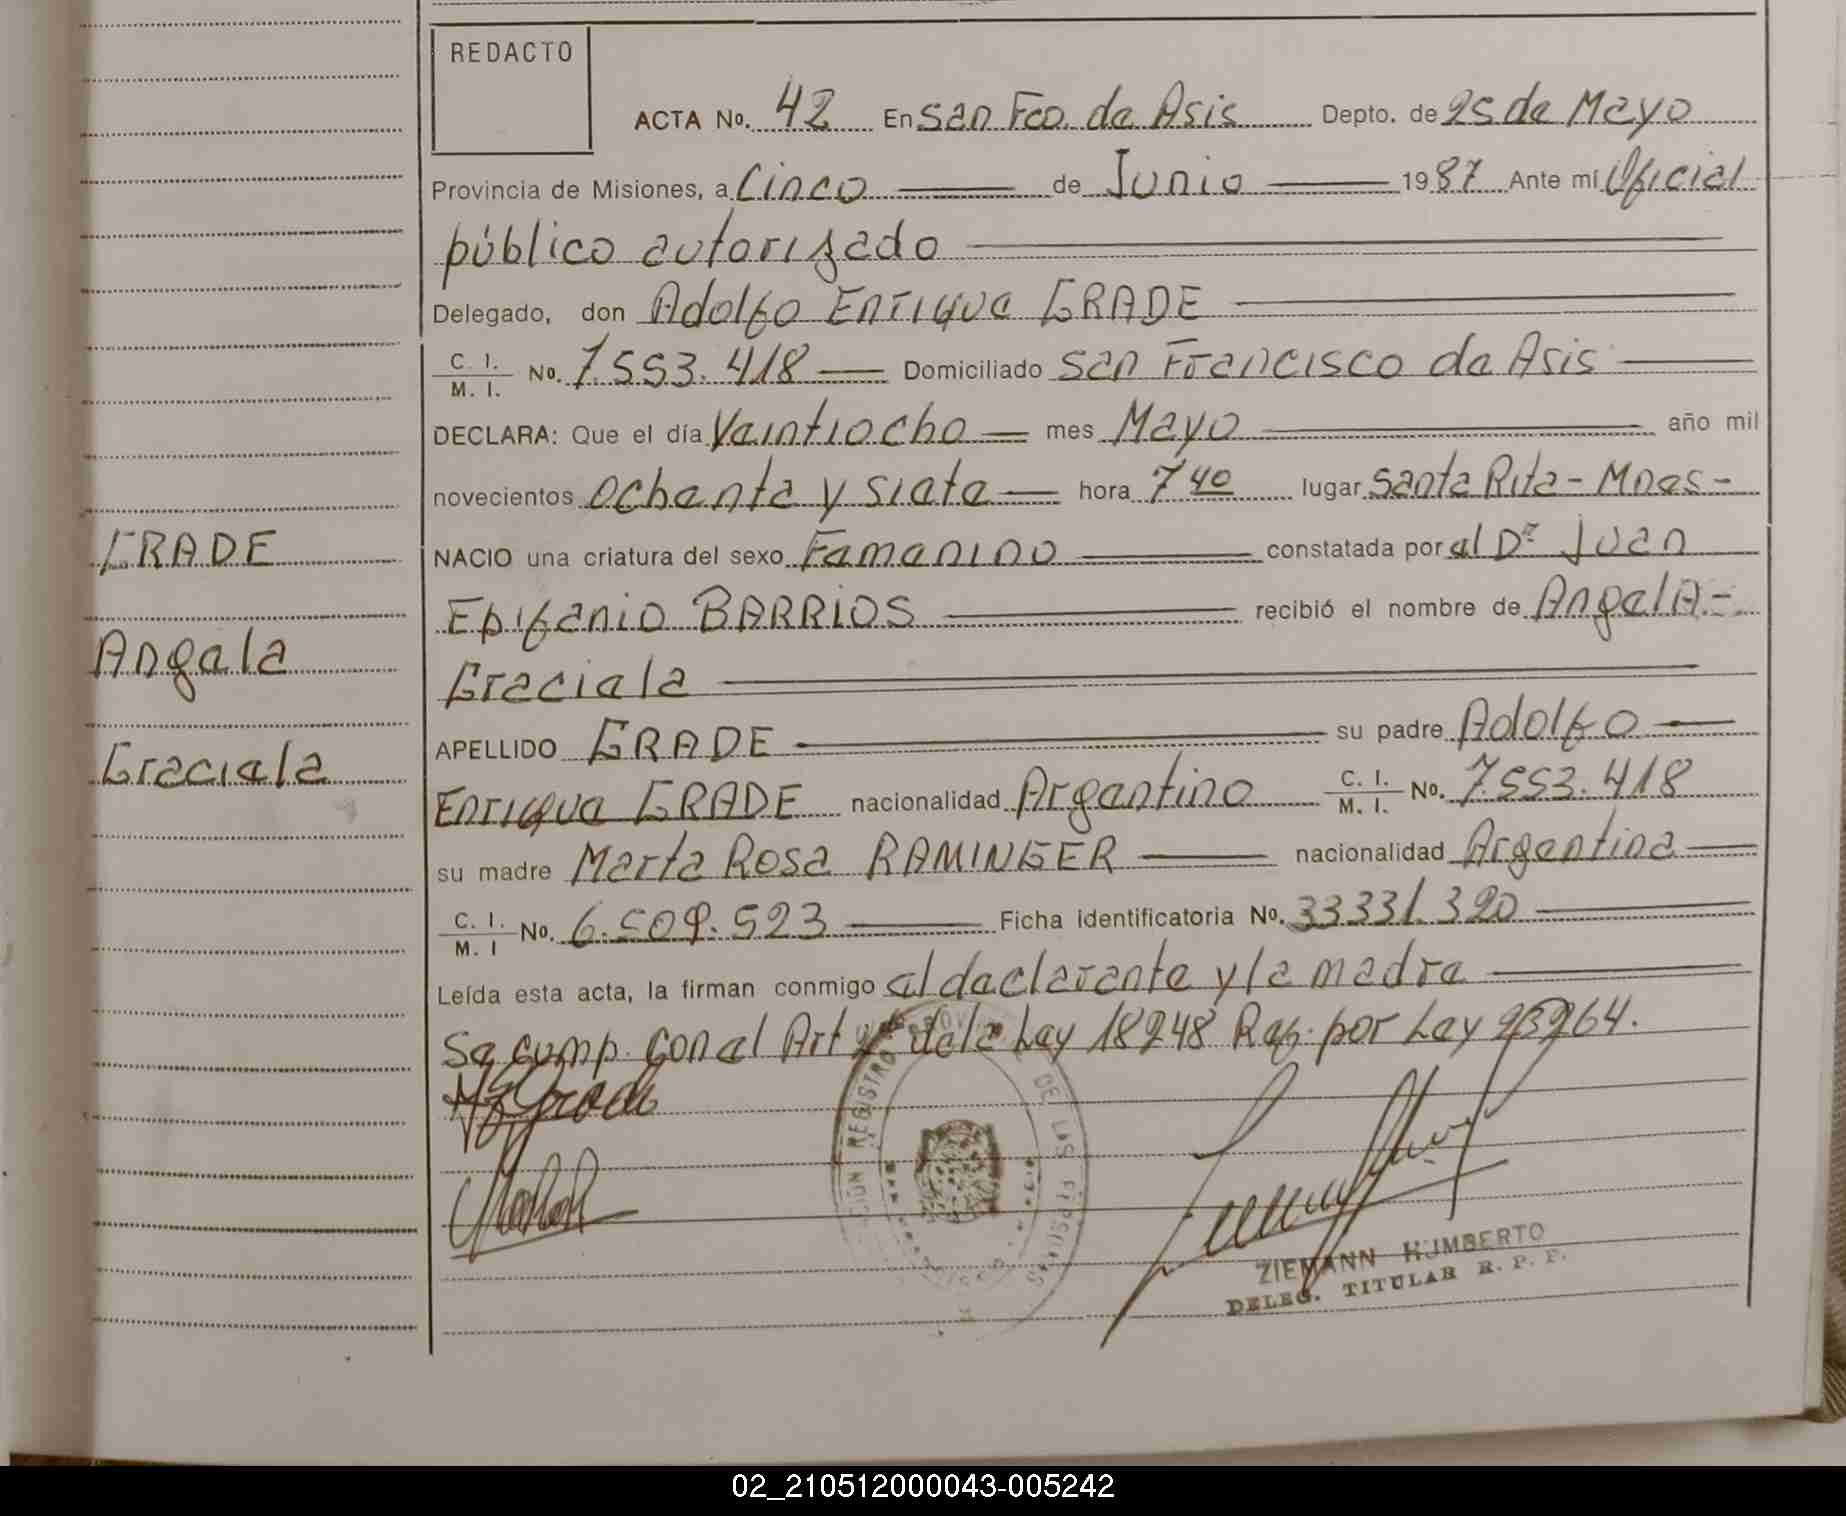 REDACTO
ACTA No. 42 En San Fco. de Asis Depto. de 25 de Mayo
Provincia de Misiones, a Cinco de Junio 1987 Ante mí Oficial
público autorizado
Delegado, don Adolfo Enrique GRADE
C. I. M. I. No. 7.553.418 Domiciliado San Francisco de Asis
DECLARA: Que el día Veintiocho mes Mayo año mil
novecientos ochenta y siete hora 7 40 lugar Santa Rita - Mnes -
NACIO una criatura del sexo Femenino constatada por el Dr Juan
Epifanio BARRIOS recibió el nombre de AngelA -
Graciela
APELLIDO GRADE su padre Adolfo
Enrique GRADE nacionalidad Argentino C. I. M. I. No. 7.553.418
su madre Marta Rosa RAMINGER nacionalidad Argentina
C. I. M. I No. 6.509.523 Ficha identificatoria No. 33331.320
Leída esta acta, la firman conmigo el declarante y la madre
Se cump. con el Art de la Ley 18248 Ref. por Ley 23264.
GRADE
Angela
Graciela
REGISTRO DE LAS
ZIEMANN HUMBERTO
DELEG. TITULAR R. P. P.
02_210512000043-005242